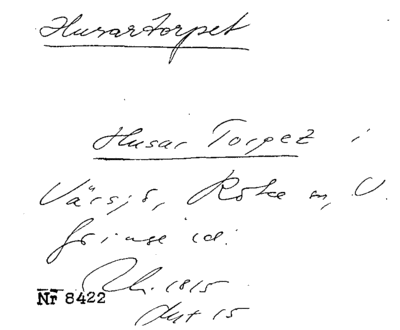 Husartorpet
Husar Torpet i
Värsjö, Röke sn, V.
Göinge hd.
Rh. 1815
Nr 8422
15